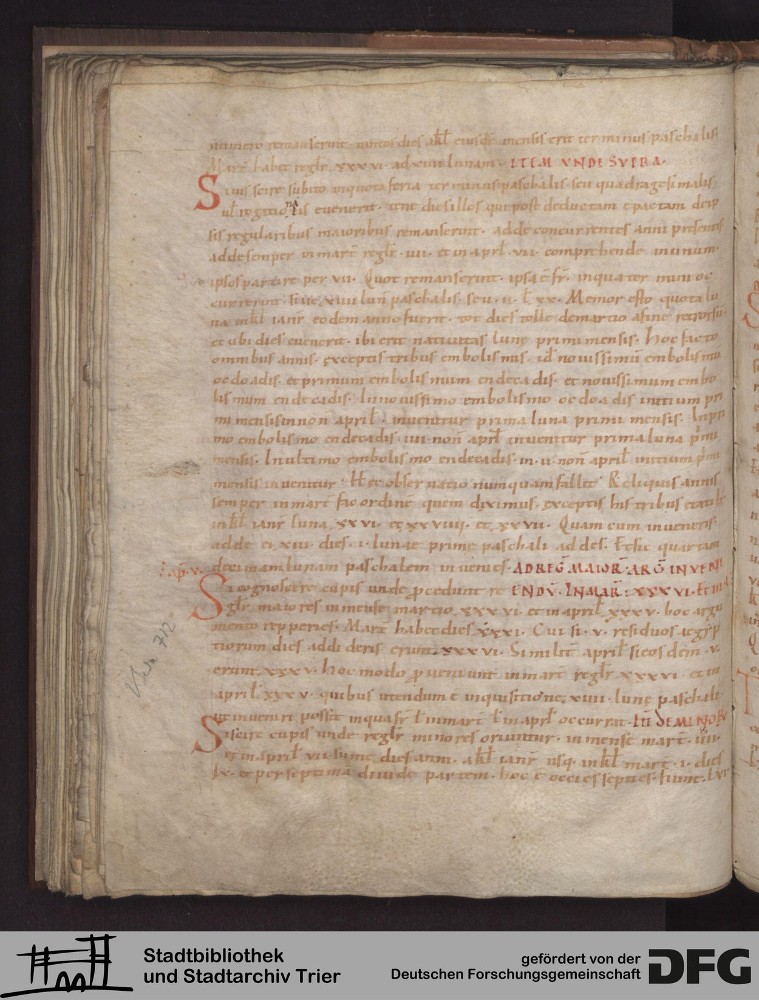 numero remanserint. tantos dies a kl eiusdē mensis erit terminus paschalis
Mart habet regłr xxxvi ad xiiii lunam. ITEM VNDE SVPRA.
Si uis scire subito in quota feria terminus paschalis. seu quadragesimalis.
uł rogationalis euenerit. tene dies illos qui post deductam epactam de ip
sis regularibus maioribus remanserint. adde concurrentes anni presentis
adde semper in marc̄ regłr. iiii. et in aprł. vii. comprehende in unum.
ipsos partire per vii. Quot remanserint. ipsa ē fr̄. in qua terminus oc
currerit. siue xiiii lun̄ paschalis. seu. ii. ł xx. Memor esto quota lu
na in kł ianr̄ eodem anno fuerit. tot dies tolle de martio a fine retrorsū
et ubi dies euenerit. ibi erit natiuitas lunę primi mensis. hoc facto
omnibus annis. exceptis tribus embolismis. id ̄ nouissimū embolismū
ocdoadis. et primum embolismum endecadis. et nouissimum embo
lismum endecadis. In nouissimo embolismo ocdoadis initium pri
mi mensis in non april. inuenitur prima luna primi mensis. In pri
mo embolismo endecadis. iiii non̄ aprł inuenitur prima luna p̄mi
mensis. In ultimo embolismo endecadis. in. ii. non̄ aprił. initium p̄mi
mensis inuenitur. Hec obseruatio numquam fallit. Reliquis annis
semper in mart̄ fac ordinē quem diximus. exceptis his tribus etatibus
in kł ianr̄ luna. xxvi. et xxviiii. et xxvii. Quam cum inueneris.
adde ei. xiii. dies. i. lunae prime paschali addes. Et sic quartam
decimam lunam paschalem inuenies. AD REḠ MAIOR̄ ARḠ INVENI
Si cognoscere cupis unde procedunt re ENDV̄. IN MAR̄. XXXVI. Et in a
głr maiores in mense martio. xxxvi. et in april xxxv. hoc argu
mento repperies. Marc̄ habet dies xxxi. Cui si. v. residuos aegyp
tiorum dies addideris erunt. xxxvi. Similit̄ april si eosdem. v.
erunt. xxxv. Hoc modo p̄ueniunt in marc̄ regłr xxxvi. et in
april xxxv. quibus utendum ē in quisitione. xiiii. lunę paschalis
ut inueniri possit in quā fr̄ ł in marc̄ ł in aprł occurrat. ITĒ DE MINORIB
Si scire cupis unde regłr minores oriuntur. in mensē marc̄. iiii.
et in aprił vii. sume dies anni. a kł ianr̄ usq. in kł marc̄. i. dies
lx. et per septima diuide partem. hoc ē octies septies. fiunt. lvi
Stadtbibliothek
und Stadtarchiv Trier
gefördert von der
Deutschen Forschungsgemeinschaft
DFG